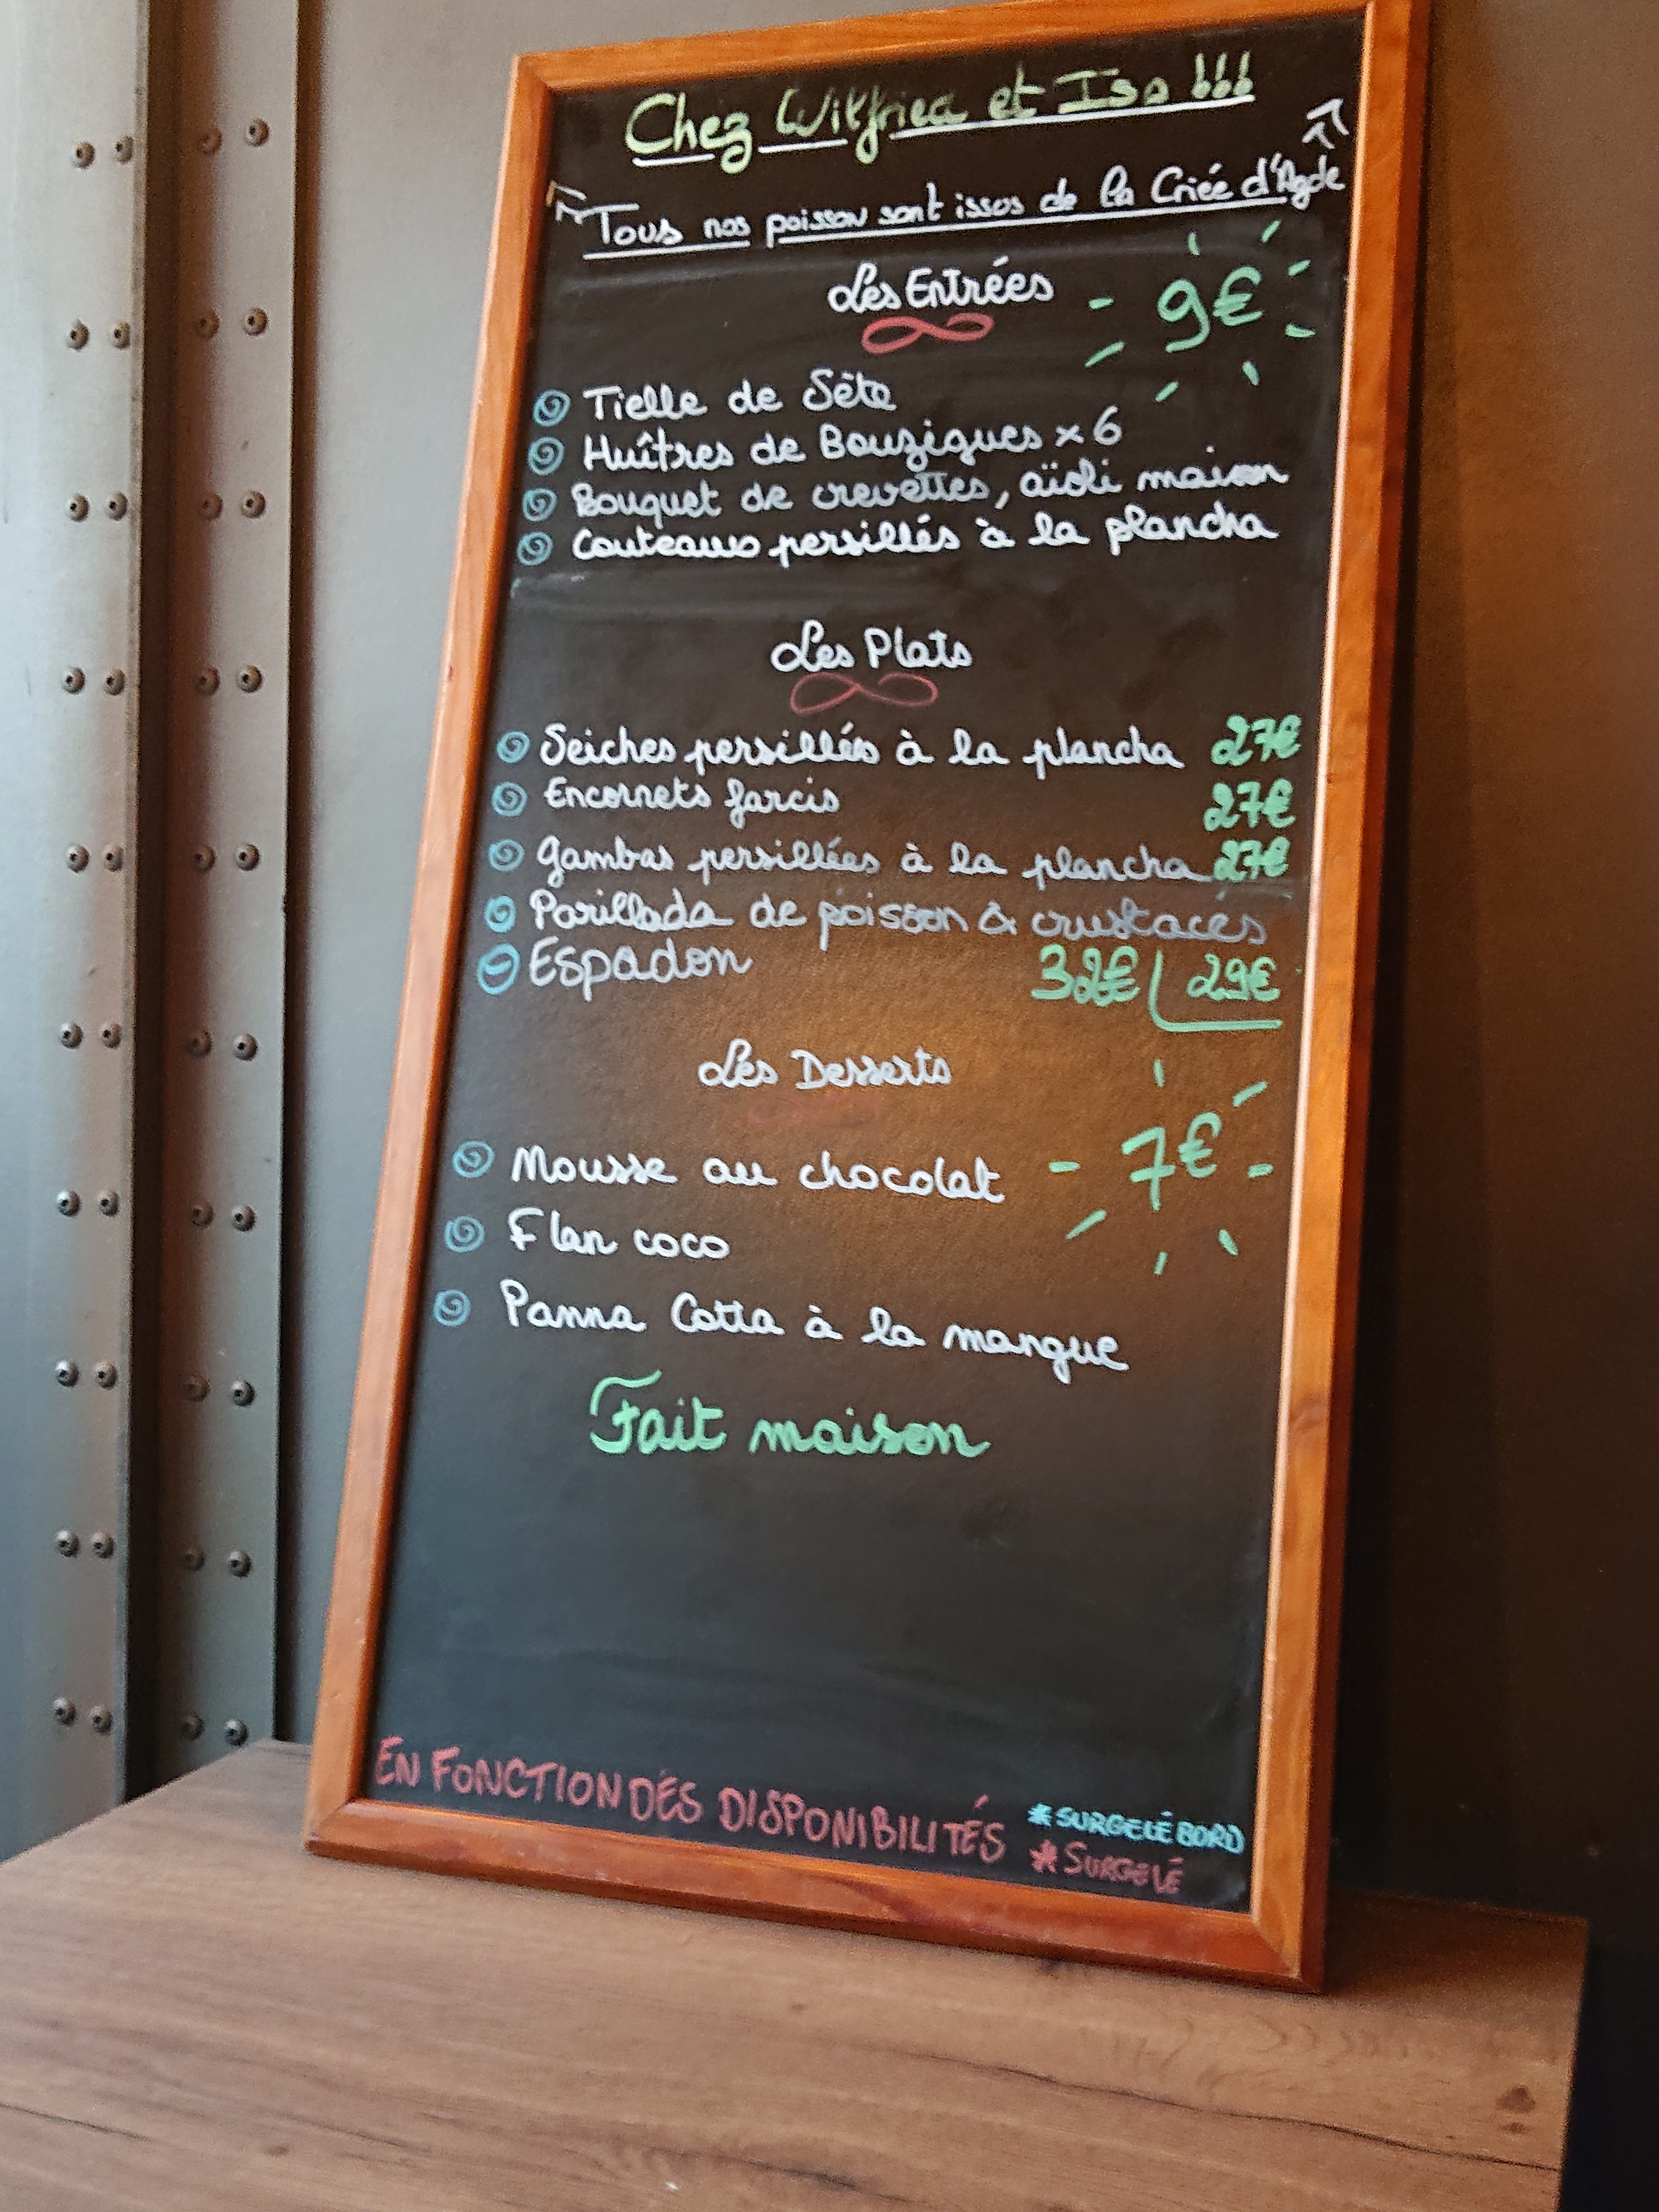 Chez Wilfried et Isa !!!
Tous nos poisson sont issus de la Criée d'Agde
Les Entrées 9€
Tielle de Sète
Huîtres de Bouzigues x 6
Bouquet de crevettes, aïoli maison
Couteaux persillés à la plancha
Les Plats
Seiches persillées à la plancha 27€
Encornets farcis 27€
Gambas persillées à la plancha 27€
Parillada de poisson & crustacés
Espadon 32€ 29€
Les Desserts
Mousse au chocolat 7€
Flan coco
Panna Cotta à la mangue
Fait maison
EN FONCTION DES DISPONIBILITÉS *SURGELÉ BORD
*SURGELÉ